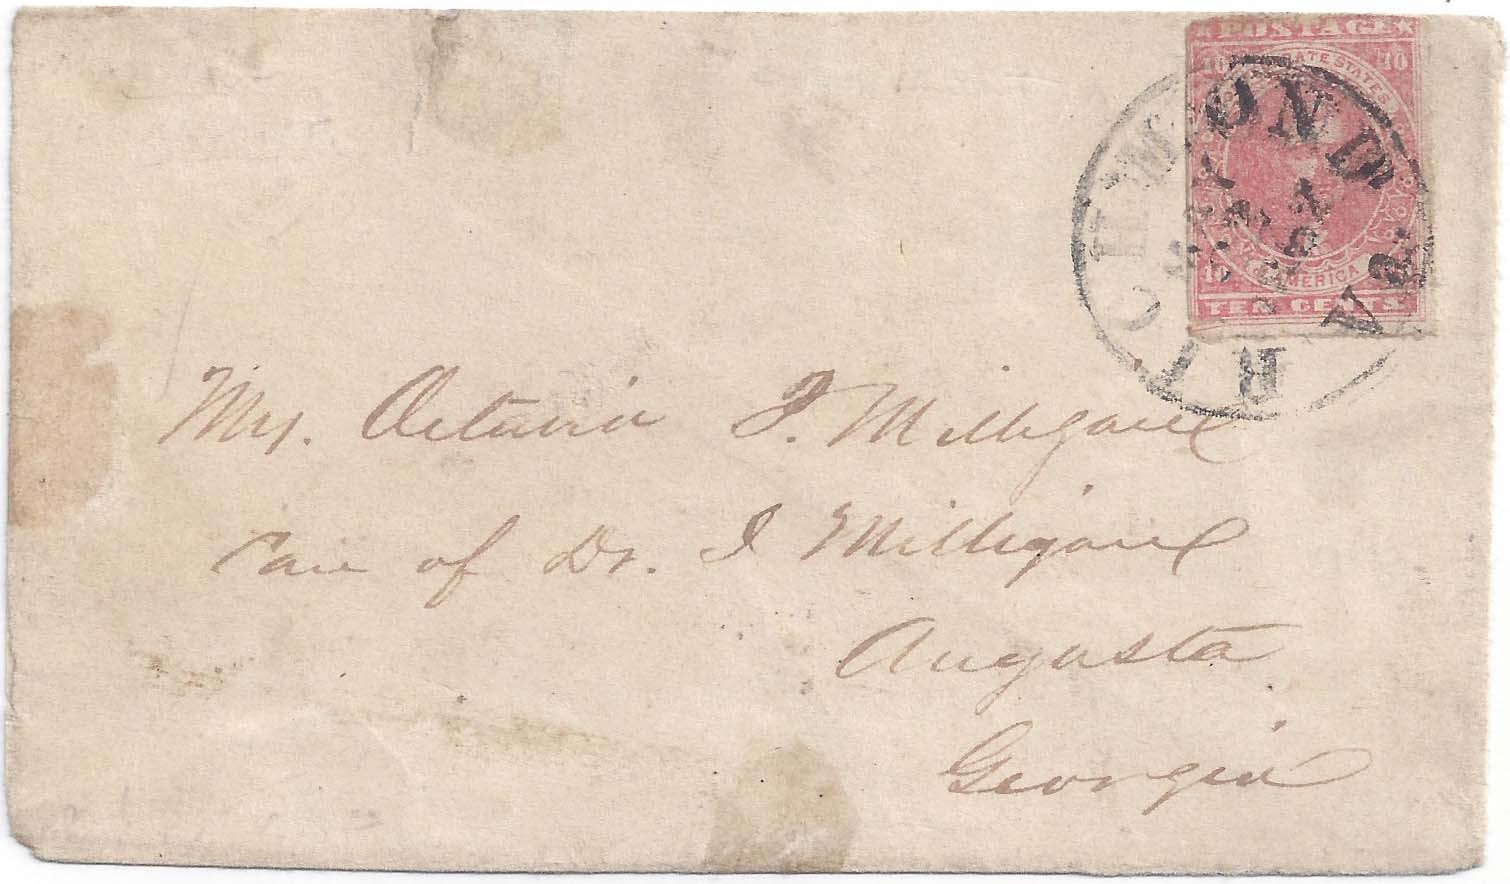 POSTAGE
10 STATES 10
10 AMERICA
TEN CENTS
RICHMOND Va.
MAY
Mrs. Octavia J. Milligan
Care of Dr. J Milligan
Augusta
Georgia